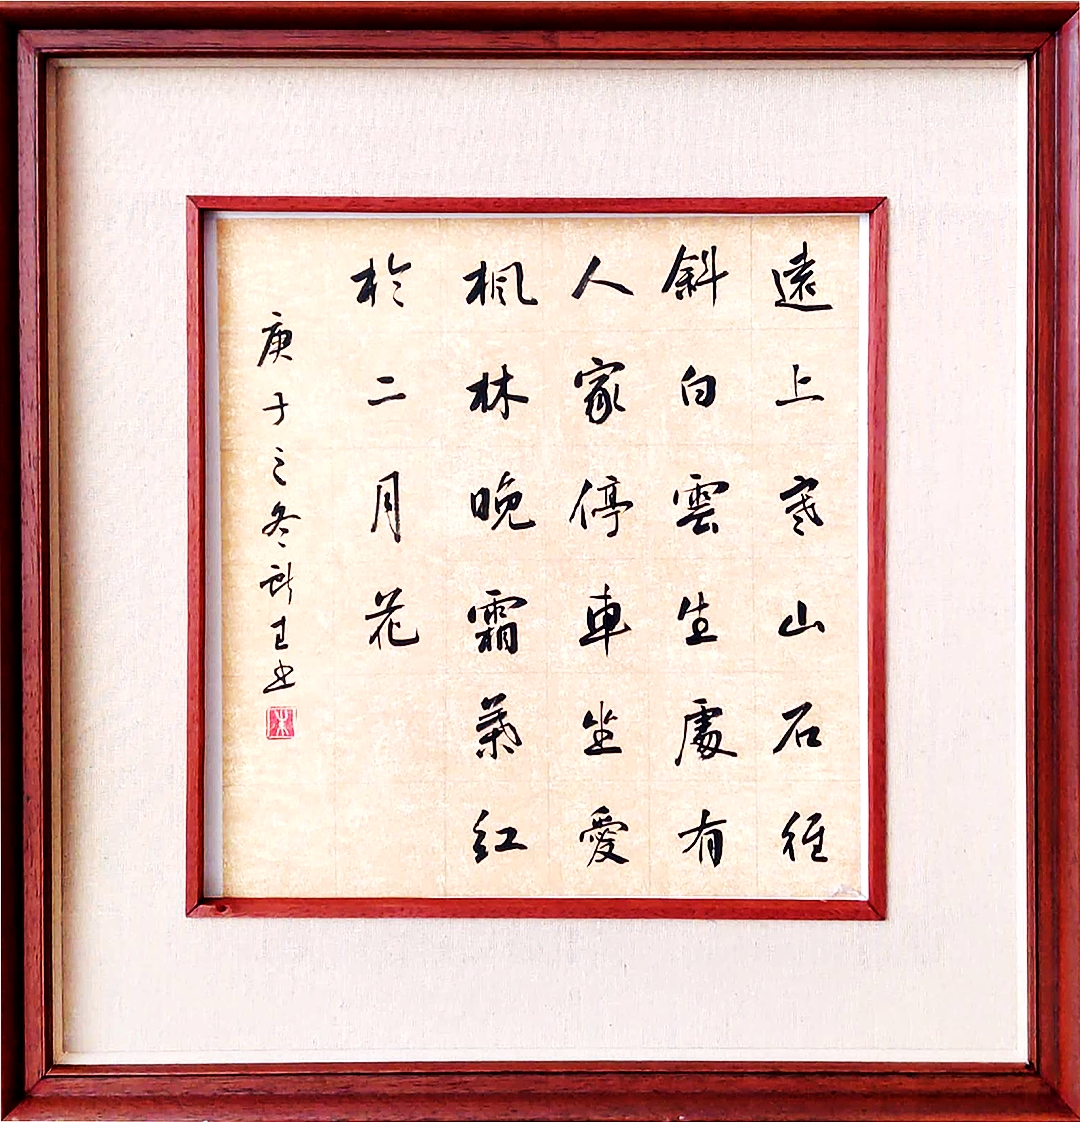 遠上寒山石徑
斜白雲生處有
人家停車坐愛
楓林晚霜葉紅
於二月花
庚子之冬